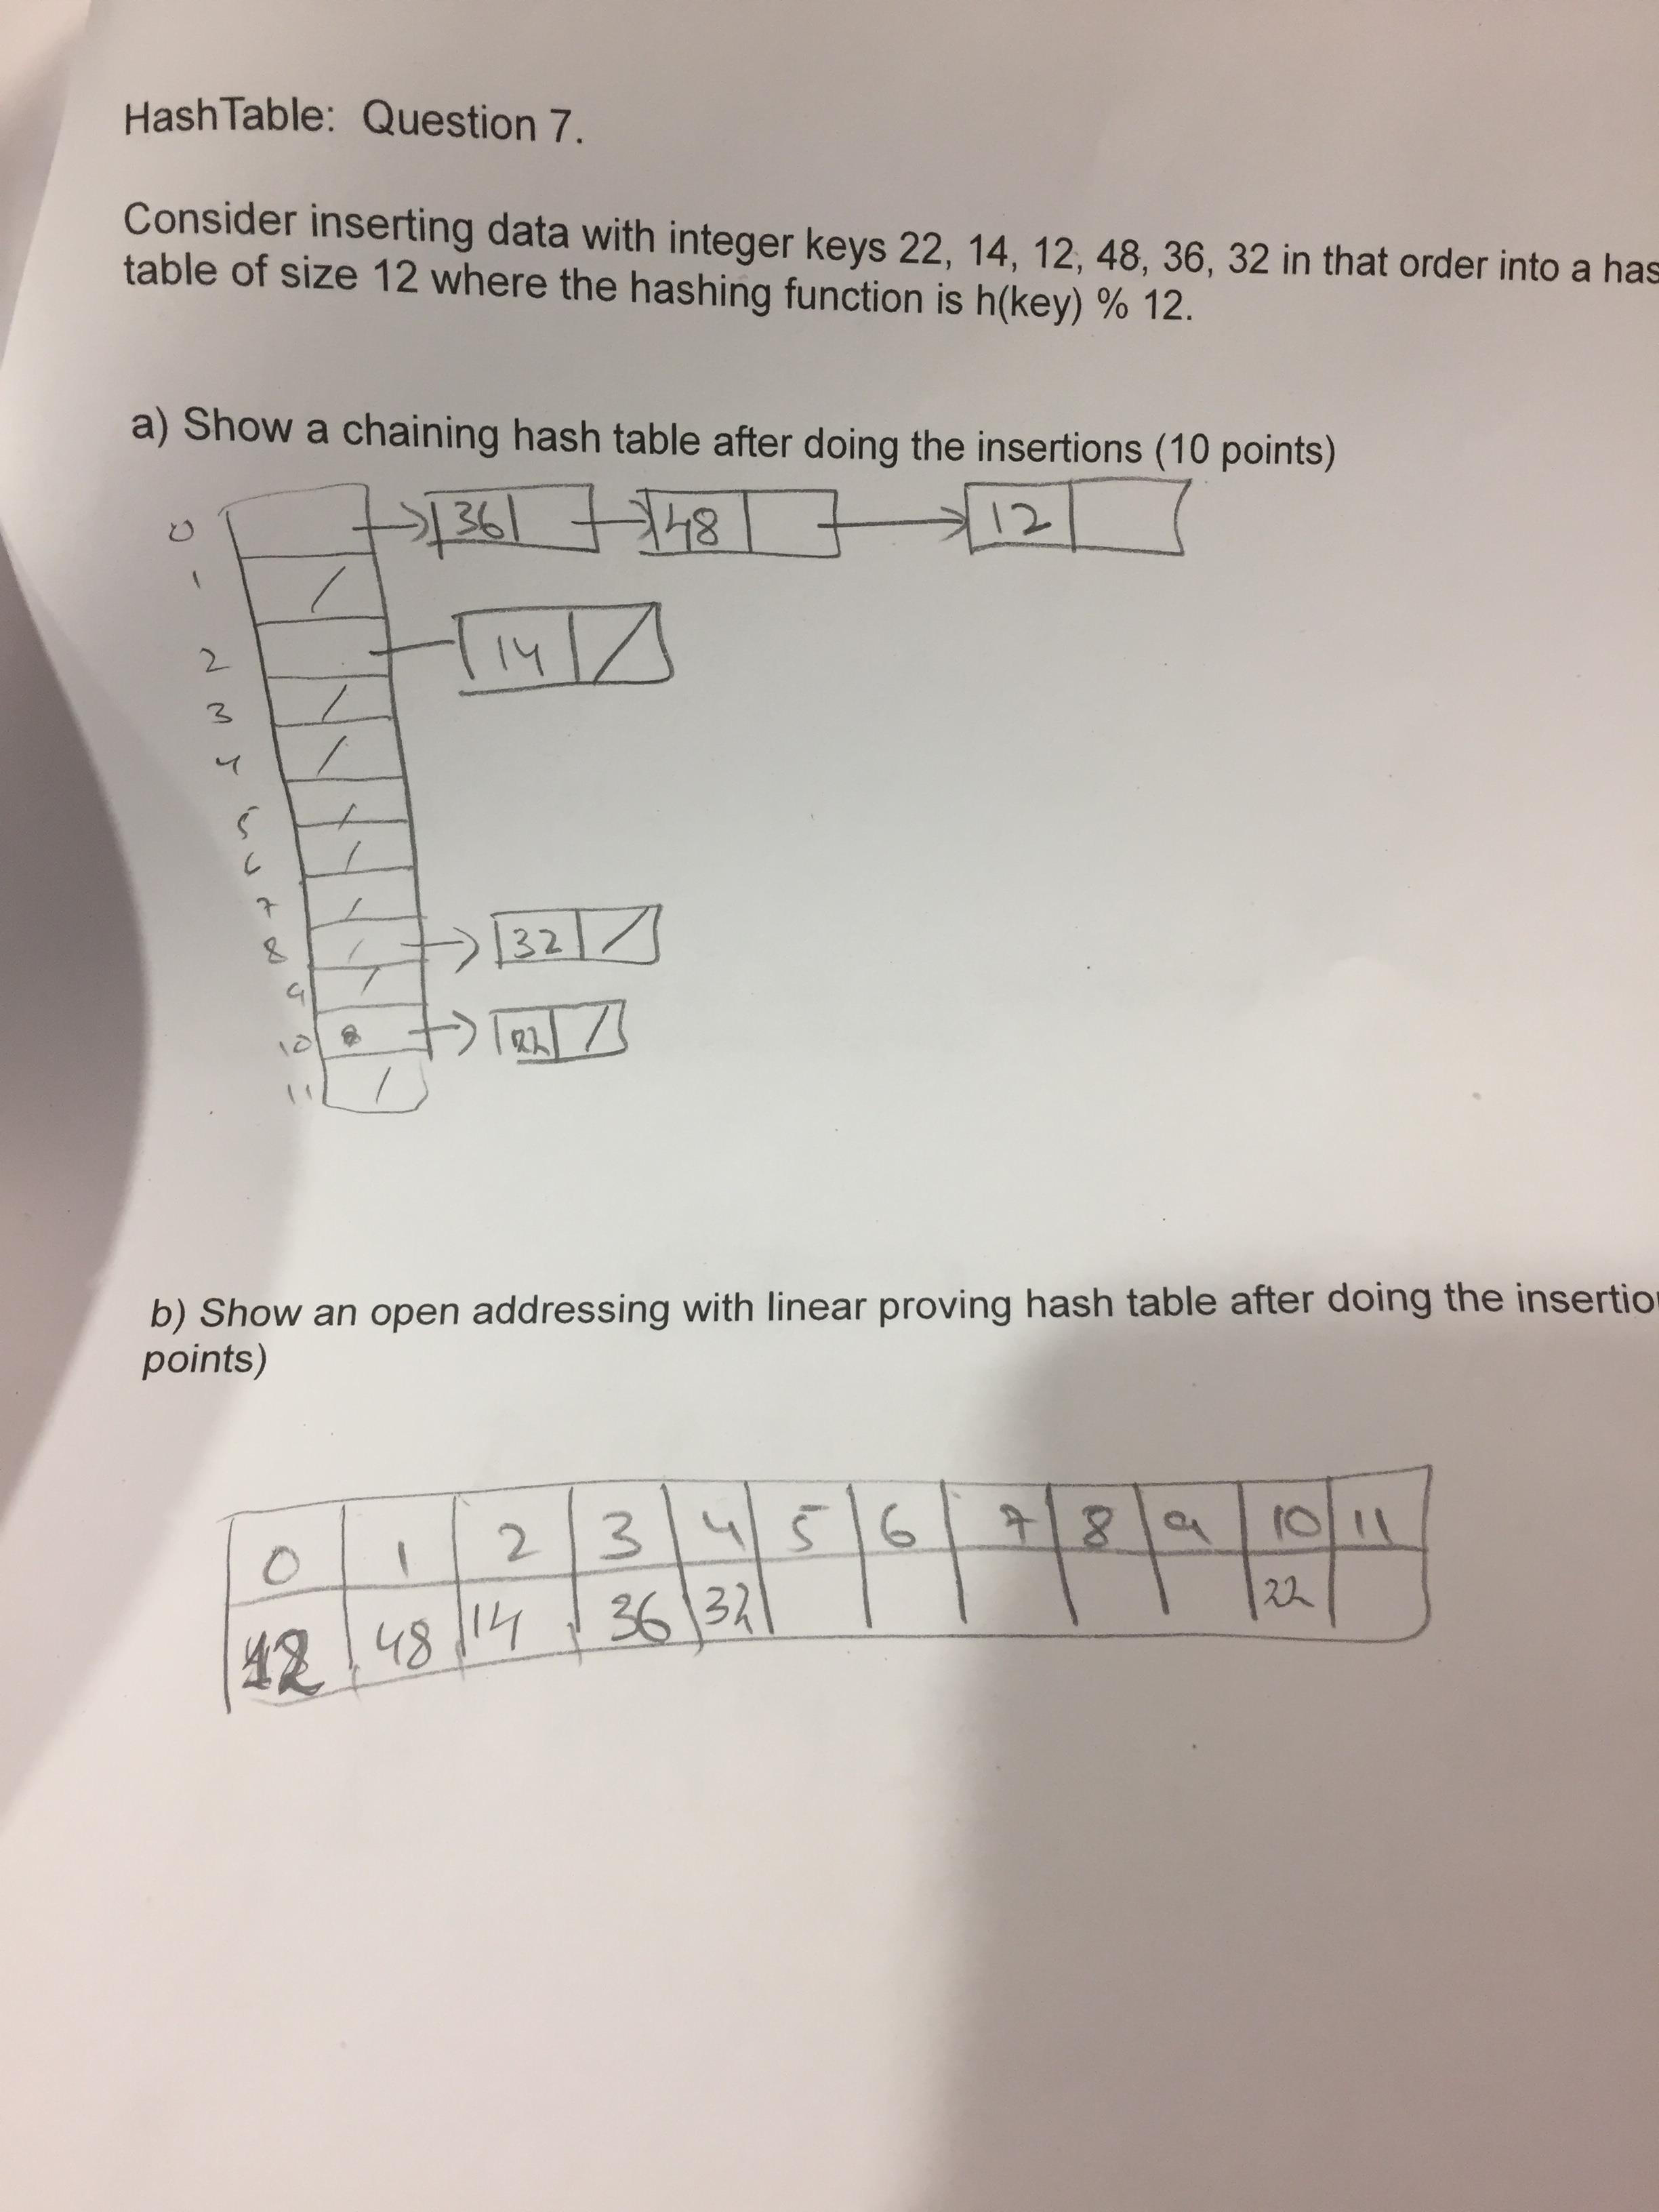 HashTable: Question 7.
Consider inserting data with integer keys 22, 14, 12, 48, 36, 32 in that order into a has
table of size 12 where the hashing function is h(key) % 12.
a) Show a chaining hash table after doing the insertions (10 points)
0 36 48 12
1
2 14
3
4
5
6
7
8 32
9
10 22
11
b) Show an open addressing with linear proving hash table after doing the insertion
points)
0 1 2 3 4 5 6 7 8 9 10 11
12 48 14 36 32 22